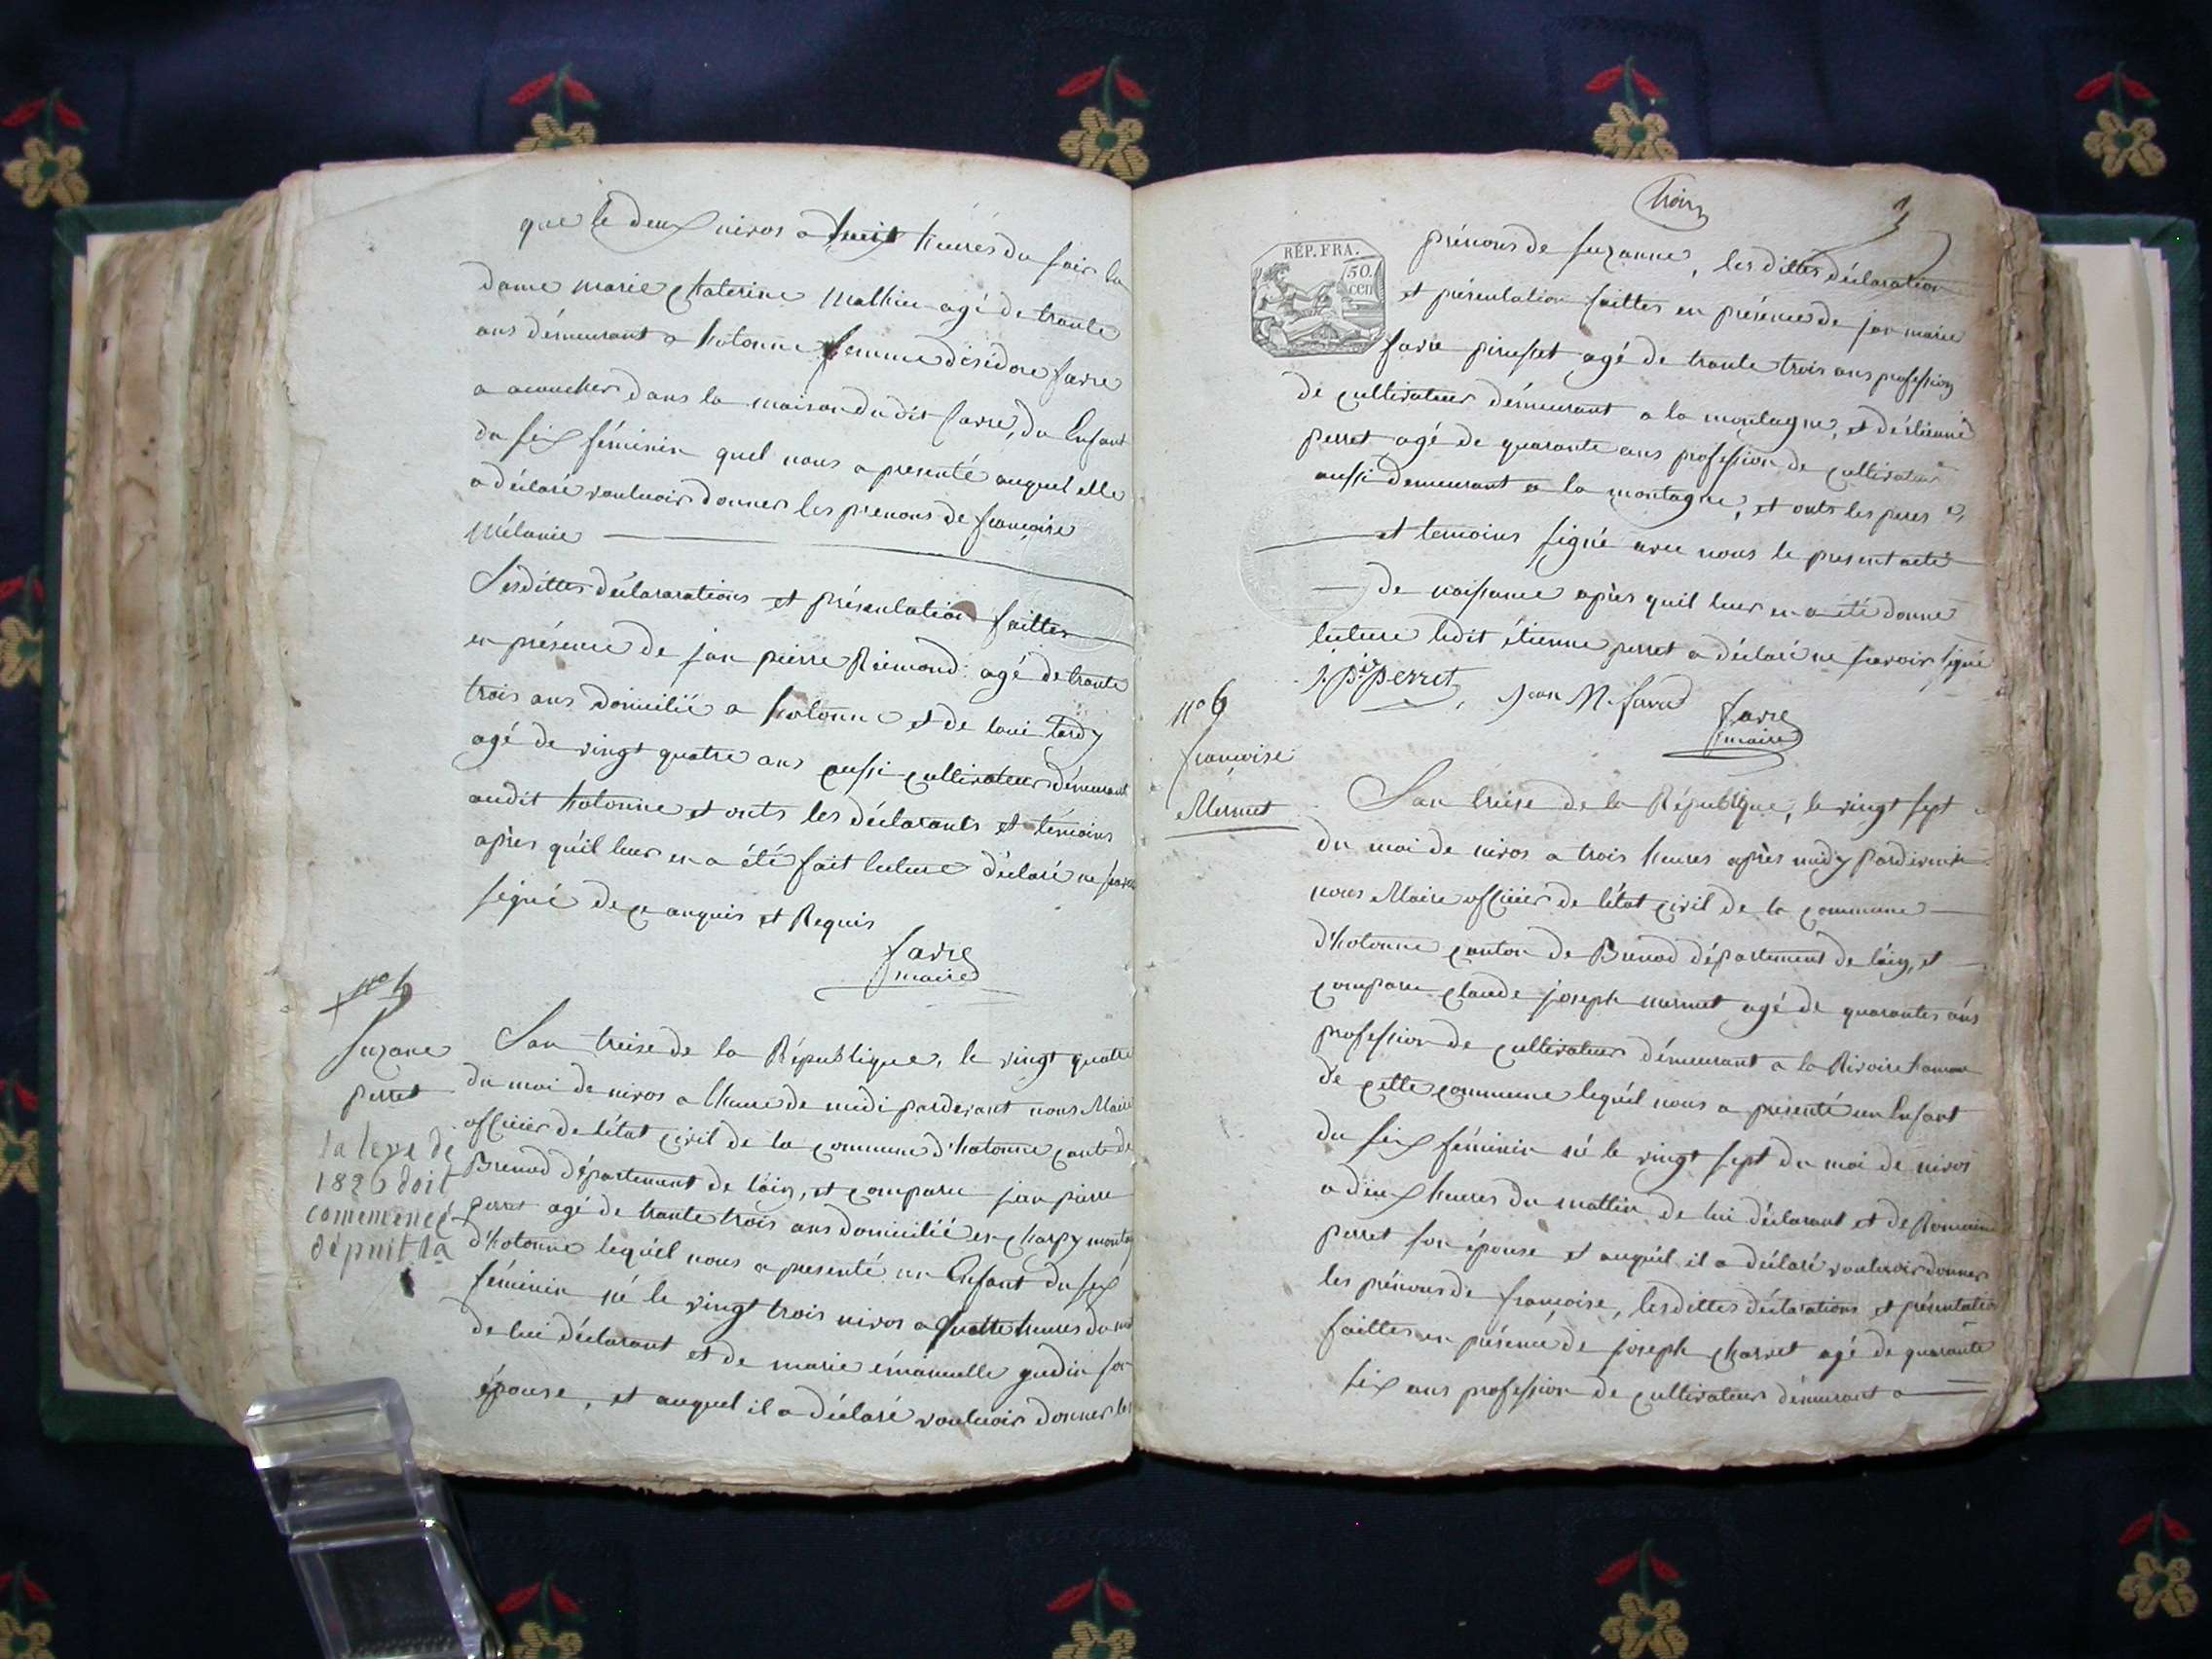 que le deux nivos a huit heures du soir la
dame marie chaterine Mathieu agé de trante
ans démeurant a hotonne femme d'isidore favre
a acoucher dans la maison du dit favre, du Enfant
du sex féminin quel nous a presenté auquel elle
a déclaré voulwoir donner les prenons de françoise
Mélanie
Lesdittes déclararations et présentation faittes
en présence de jan pierre Reimond agé de trante
trois ans domicilié a hotonne et de loui tardy
agé de vingt quatre ans aussi cultivateur démeurant
audit hotonne et onts les déclarants et témoins
après qu'il leur en a été fait lecture déclaré ne
signé de ce anquis et Requis
favre
maire
n°
Suzane
perret
la leve de
doit
comemencé
dépuit la
Lan treise de la République, le vingt quatre
du moi de nivos a lheure de midi pardevant nous Maire
officier de létat civil de la commune d'hotonne
Brenod département de láin, et comparu jan pierre
perret agé de trante trois ans domicilié en charpy
d'hotonne lequél nous a presenté un Enfant du sex
féminin né le vingt trois nivos a quatre heures du
de lui déclarant et de marie émanuelle gudin son
épouse, et auquel il a déclaré voulwoir donner les
trois
3
RÉP. FRA.
50.
cen
prénons de suzanne, les dittes déclaration
et présentation faittes en présence de jan marie
favre agé de trante trois ans profession
de cultivateur démeurant a la montagne, et détienne
perret agé de quarante ans profession de cultivateur
aussi demeurant a la montagne, et onts les peres
et temoins signé avec nous le present acte
de naissance après quil leur en a été donné
lecture ledit étienne perret a déclaré ne savoir signé
j. p.re perret, jean M. favre favre
maire
n° 6
françoise
Mermet
Lan treise de la République, le vingt sept
du moi de nivos a trois heures après midy pardevant
nous Maire officier de létat civil de la commune
d'hotonne canton de Brenod département de láin, et
comparu claude joseph mermet agé de quarantes ans
profession de cultivateur démeurant a la Rivoire hamau
de cette commune lequél nous a présenté un Enfant
du sex féminin né le vingt sept du moi de nivos
a deux heures du mattin de lui déclarant et de Romaine
perret son épouse et auquél il a déclaré voulwoir donner
les prénons de françoise, lesdittes déclarations et présentation
faittes en présence de joseph charvet agé de quarante
six ans profession de cultivateur démeurant a